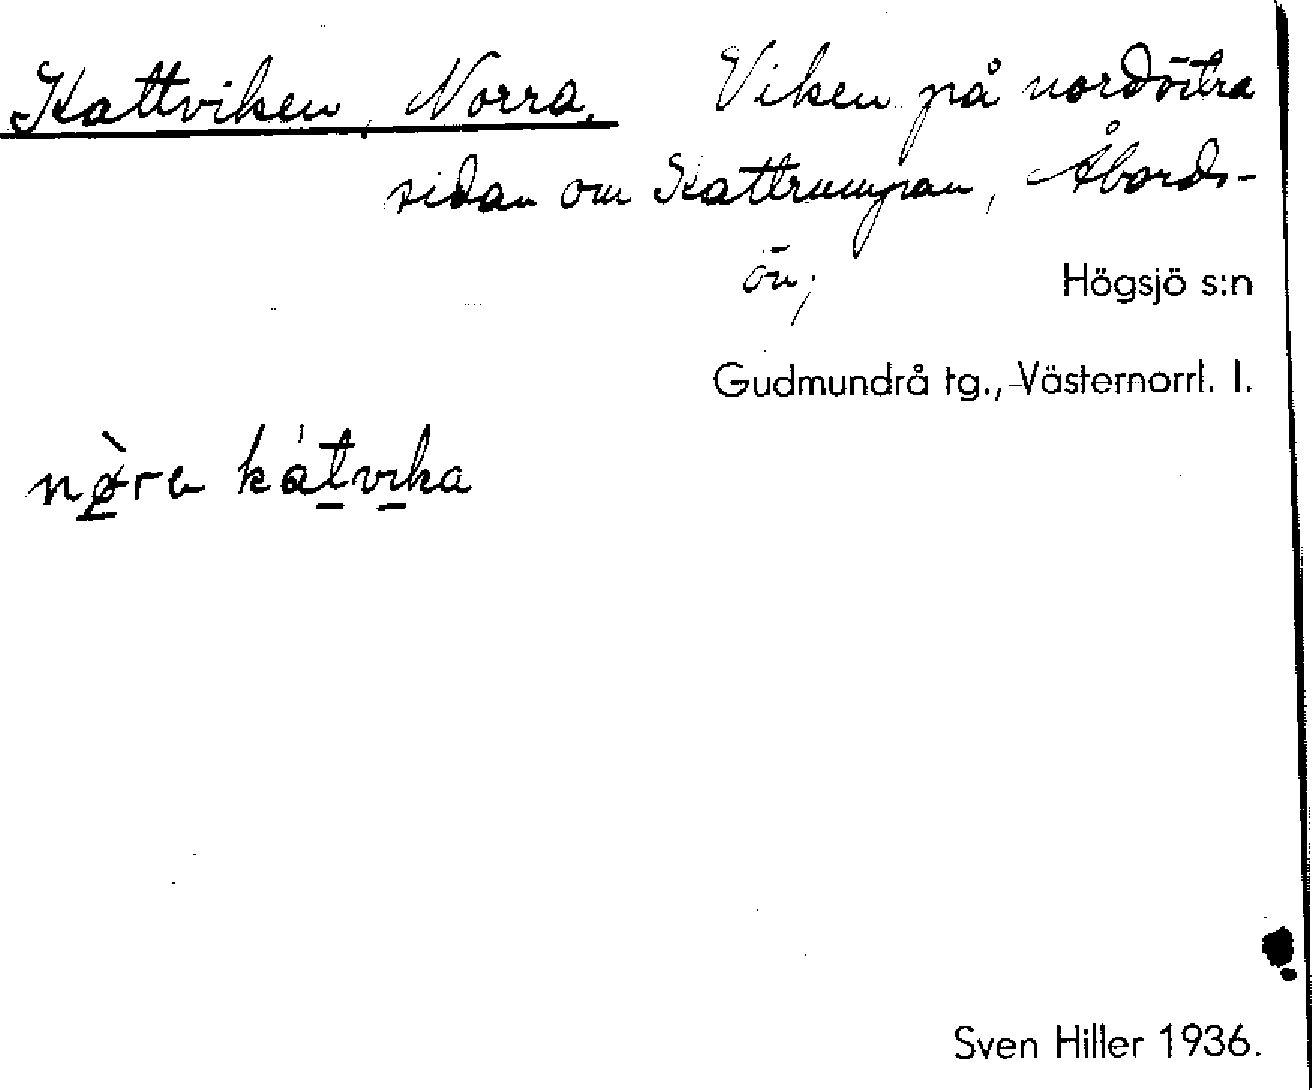 Kattviken, Norra. Viken på nordöstra
sidan om Kattrumpan, Åbords-
ön;
Högsjö s:n
Gudmundrå tg., Västernorrl. l.
nø̀ra kátvika
Sven Hiller 1936.